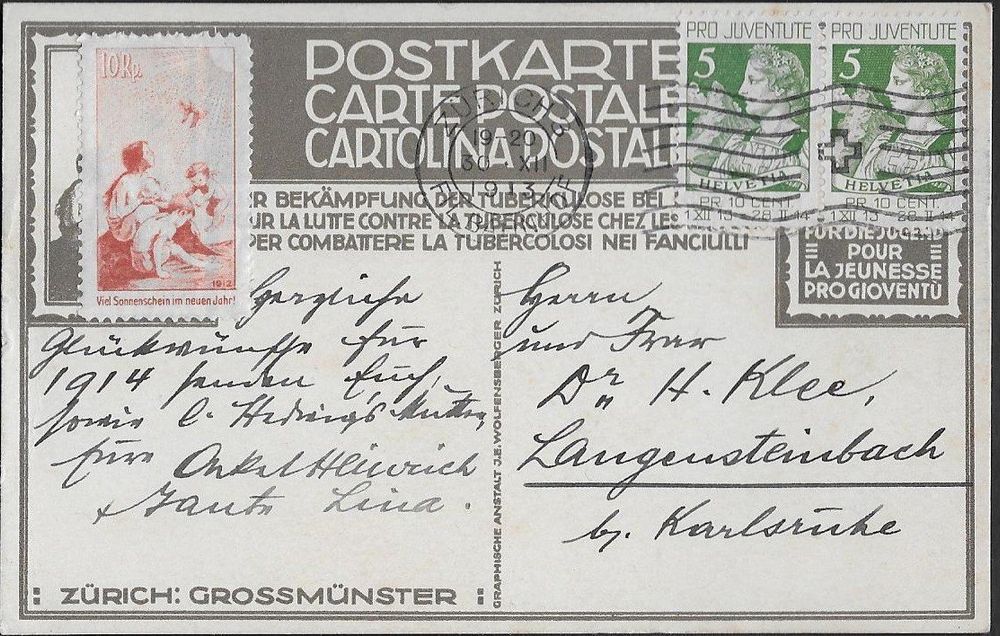 POSTKARTE
CARTE POSTALE
CARTOLINA POSTAL
R BEKÄMPFUNG DER TUBERKULOSE BEI
UR LA LUTTE CONTRE LA TUBERCULOSE CHEZ LES
PER COMBATTERE LA TUBERCOLOSI NEI FANCIULLI
10 Rp.
1912
Viel Sonnenschein im neuen Jahr!
ZÜRICH
19-20
30 XII
1913
PRO JUVENTUTE
5
HELVETIA
PR 10 CENT
1 XII 13 - 28 II 14
PRO JUVENTUTE
5
HELVETIA
PR 10 CENT
1 XII 13 - 28 II 14
FÜR DIE JUGEND
POUR
LA JEUNESSE
PRO GIOVENTÙ
Herzliche
Glückwünsche für
1914 senden Euch,
sowie l. Hedwig's Mutter,
Eure Onkel Heinrich
& Tante Lina.
GRAPHISCHE ANSTALT J.E. WOLFENSBERGER ZÜRICH
Herrn
und Frau
Dr. H. Klee,
Langensteinbach
b/ Karlsruhe
ZÜRICH: GROSSMÜNSTER